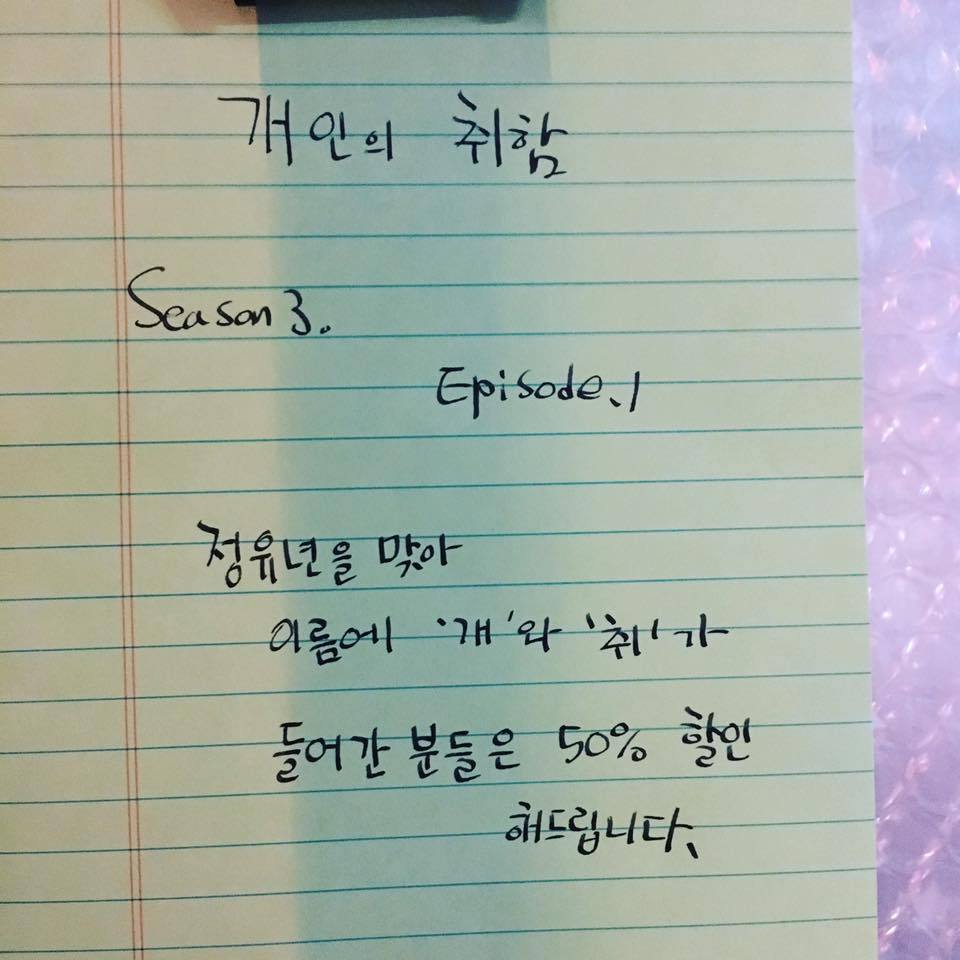 개인의 취함
Season 3.
Episode.1
정유년을 맞아
이름에 '개'와 '취'가
들어간 분들은 50% 할인
해드립니다.